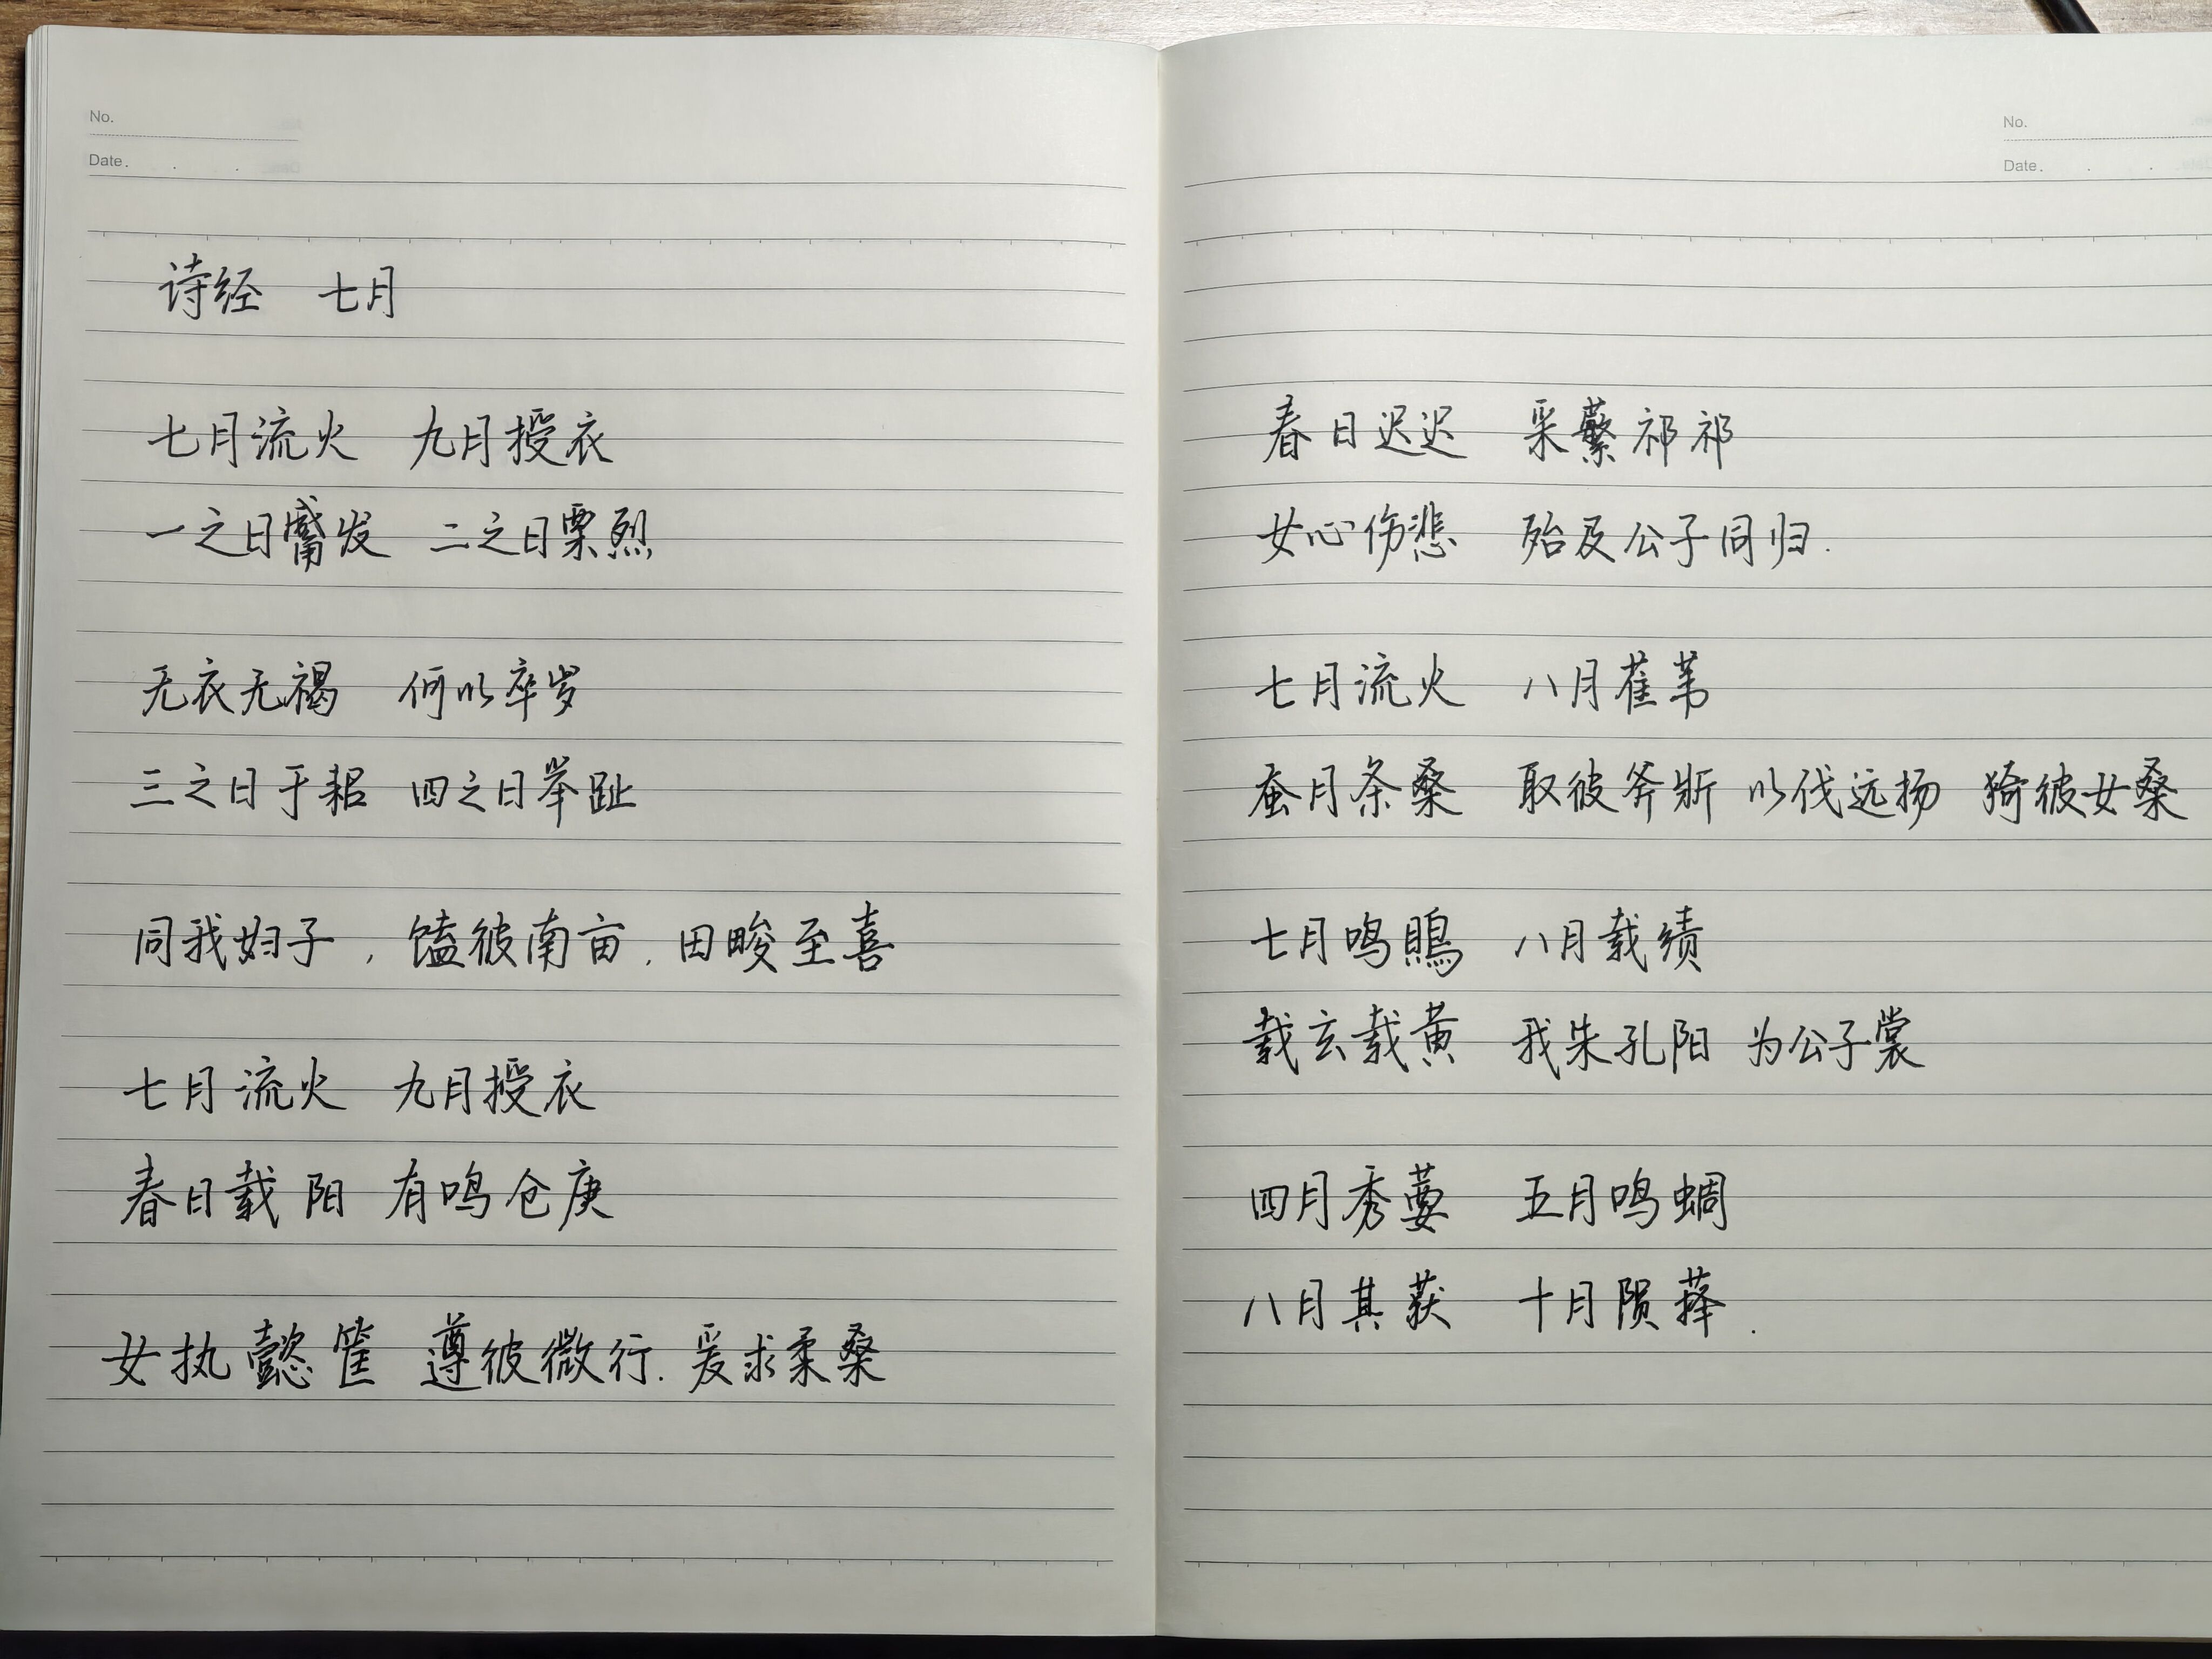 No.
Date.
诗经 七月
七月流火 九月授衣
一之日觱发 二之日栗烈
无衣无褐 何以卒岁
三之日于耜 四之日举趾
同我妇子，馌彼南亩．田畯至喜
七月流火 九月授衣
春日载阳 有鸣仓庚
女执懿筐 遵彼微行．爰求柔桑
No.
Date.
春日迟迟 采蘩祁祁
女心伤悲 殆及公子同归．
七月流火 八月萑苇
蚕月条桑 取彼斧斨 以伐远扬 猗彼女桑
七月鸣鵙 八月载绩
载玄载黄 我朱孔阳 为公子裳
四月秀葽 五月鸣蜩
八月其获 十月陨萚．